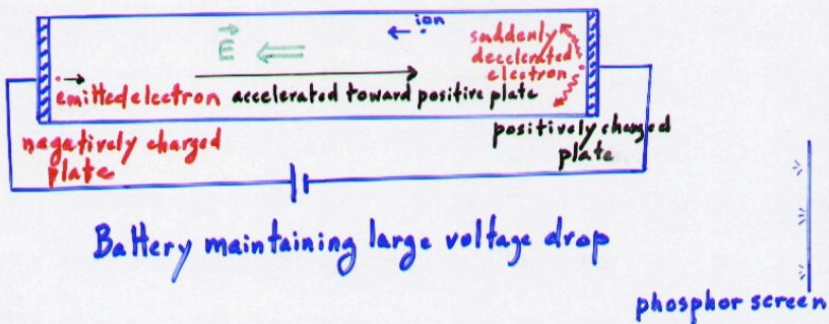 E
ion
suddenly
decelerated
electron
emitted electron
accelerated toward positive plate
negatively charged
plate
positively charged
plate
Battery maintaining large voltage drop
phosphor screen